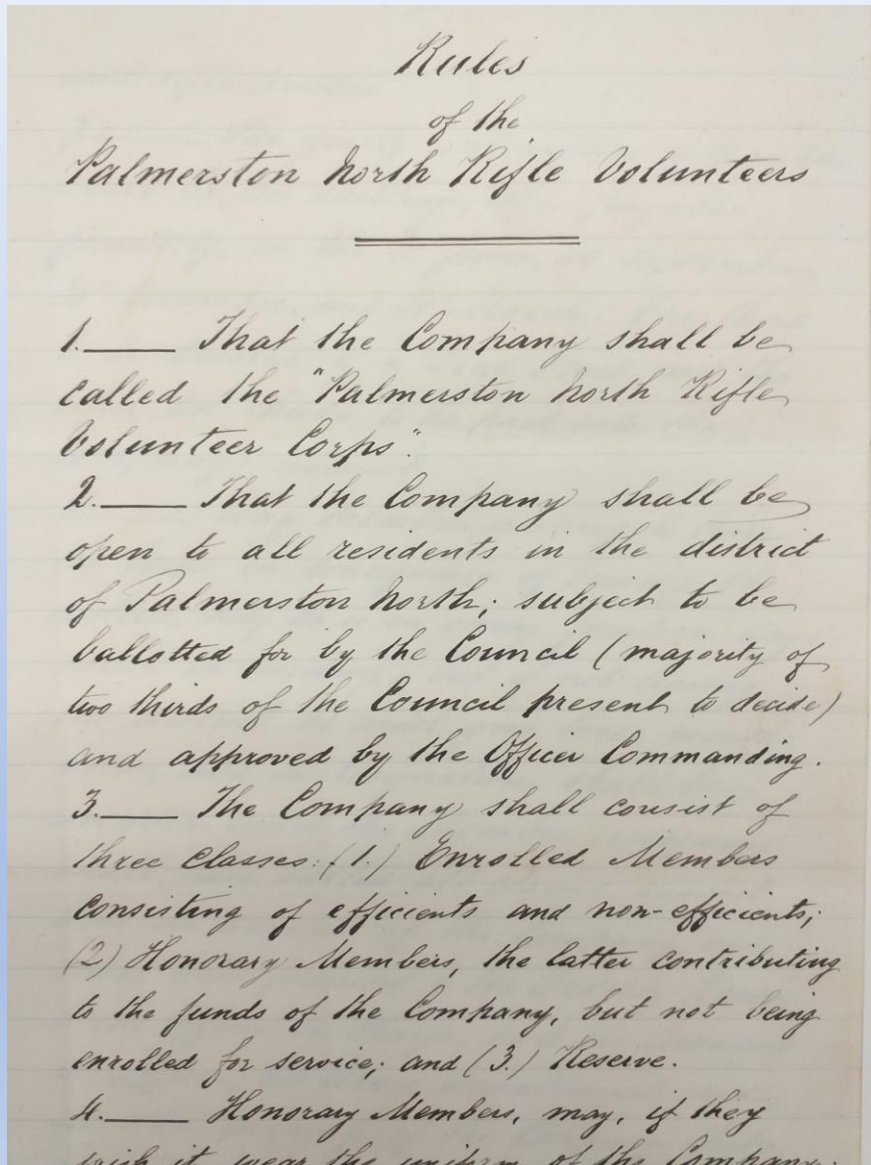 Rules
of the
Palmerston North Rifle Volunteers
1. That the Company shall be
called the "Palmerston North Rifle
Volunteer Corps".
2. That the Company shall be
open to all residents in the district
of Palmerston North; subject to be
ballotted for by the Council (majority of
two thirds of the Council present to decide)
and approved by the Officer Commanding.
3. The Company shall consist of
three classes: (1.) Enrolled Members
consisting of efficients and non-efficients;
(2) Honorary Members, the latter contributing
to the funds of the Company, but not being
enrolled for service; and (3.) Reserve.
4. Honorary Members, may, if they
wish it wear the uniform of the Company;